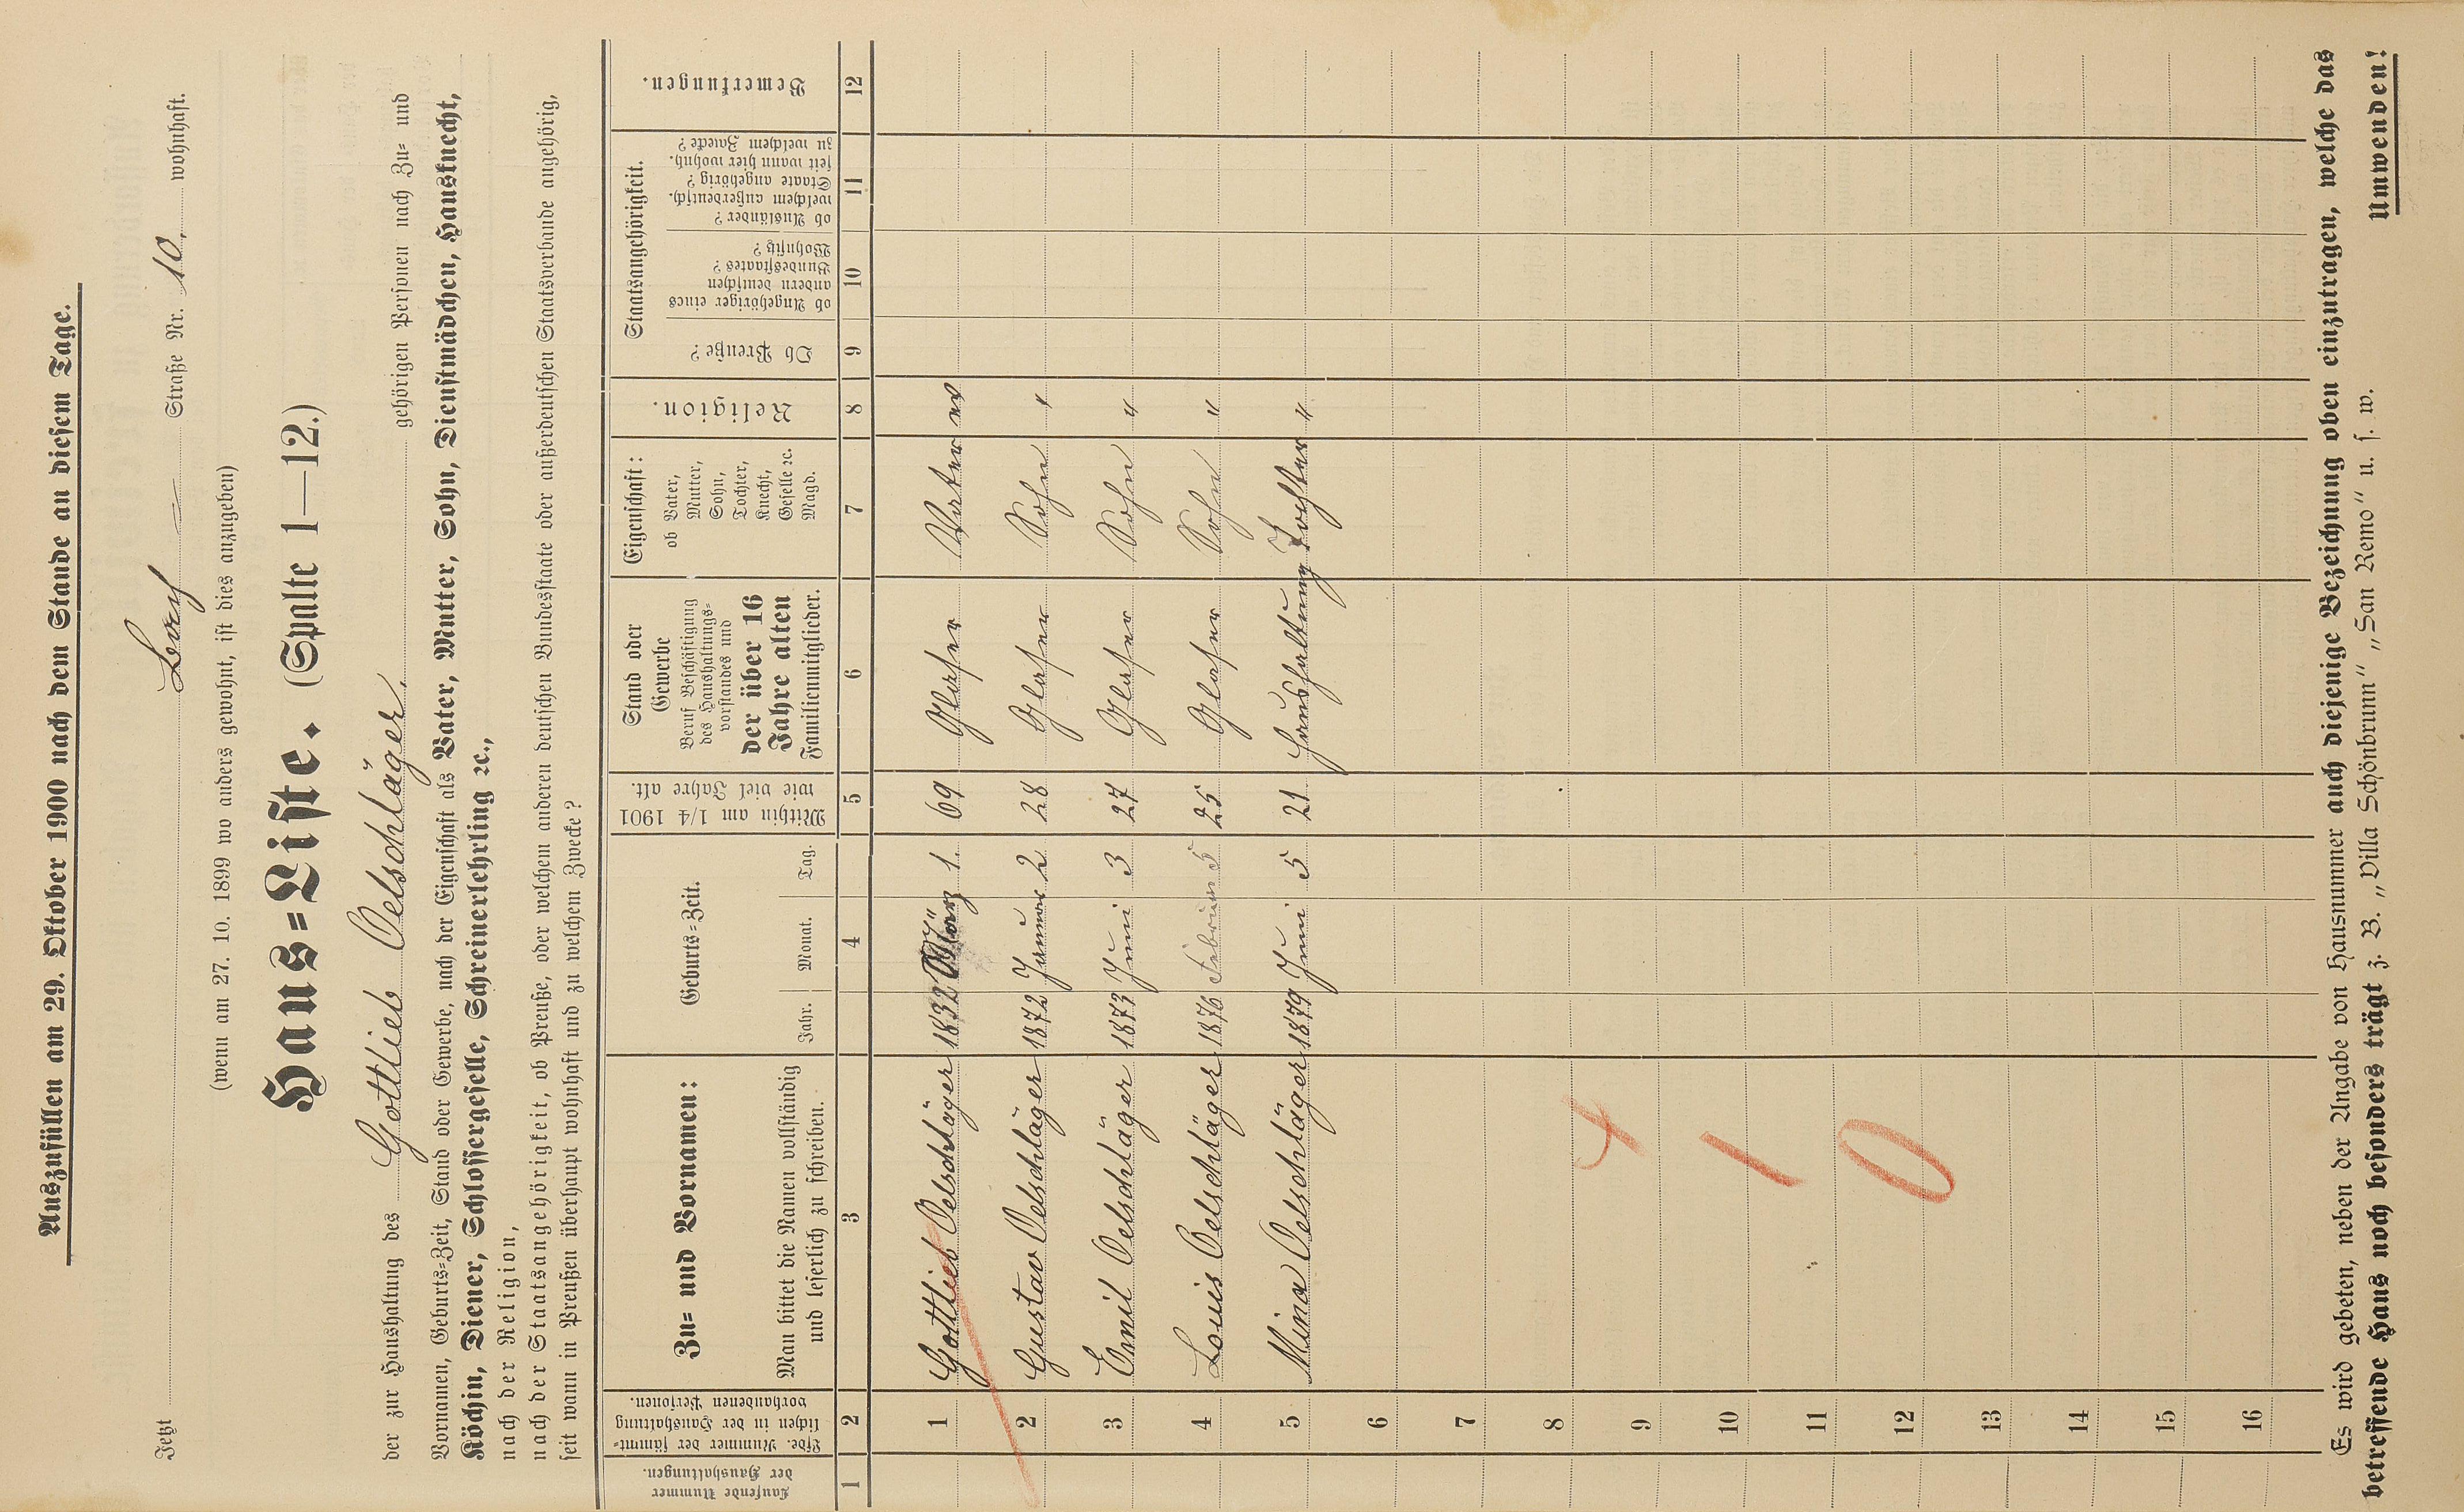 Auszufüllen am 29. Oktober 1900 nach dem Stande an diesem Tage.
Jetzt Straße Nr. 10. wohnhaft.
(wenn am 27. 10. 1899 wo anders gewohnt, ist dies anzugeben)
Haus=Liste. (Spalte 1—12.)
der zur Haushaltung des Gottlieb Oelschläger. gehörigen Personen nach Zu= und
Vornamen, Geburts=Zeit, Stand oder Gewerbe, nach der Eigenschaft als Vater, Mutter, Sohn, Dienstmädchen, Hausknecht,
Köchin, Diener, Schlossergeselle, Schreinerlehrling ꝛc.,
nach der Religion,
nach der Staatsangehörigkeit, ob Preuße, oder welchem anderen deutschen Bundesstaate oder außerdeutschen Staatsverbande angehörig,
seit wann in Preußen überhaupt wohnhaft und zu welchem Zwecke?
Laufende Nummer
der Haushaltungen.
Lfde. Nummer der sämmt=
lichen in der Haushaltung
vorhandenen Personen.
Zu= und Vornamen:
Man bittet die Namen vollständig
und leserlich zu schreiben.
Geburts=Zeit.
Jahr. Monat. Tag.
Mithin am 1/4 1901
wie viel Jahre alt.
Stand oder
Gewerbe
Beruf Beschäftigung
des Haushaltungs=
vorstandes und
der über 16
Jahre alten
Familienmitglieder.
Eigenschaft:
ob Vater,
Mutter,
Sohn,
Tochter,
Knecht,
Geselle ꝛc.
Magd.
Religion.
Staatsangehörigkeit.
Ob Preuße?
ob Angehöriger eines
andern deutschen
Bundesstaates?
Wohnsitz?
ob Ausländer?
welchem außerdeutsch.
Staate angehörig?
seit wann hier wohnh.
zu welchem Zwecke?
Bemerkungen.
1 2 3 4 5 6 7 8 9 10 11 12
1 Gottlieb Oelschläger 1832 März 1. 69 Glaser Vater ev
2 Gustav Oelschläger 1872 Januar 2 28 Glaser Sohn "
3 Emil Oelschläger 1873 Juni 3 27 Glaser Sohn "
4 Louis Oelschläger 1876 Februar 5 25 Glaser Sohn "
5 Mina Oelschläger 1879 Juni 5 21 Haushaltung Tochter "
6
7
8
9
10
11
12
13
14
15
16
4
1
0
Es wird gebeten, neben der Angabe von Hausnummer auch diejenige Bezeichnung oben einzutragen, welche das
betreffende Haus noch besonders trägt z. B. „Villa Schönbrunn" „San Remo" u. s. w.
Umwenden!